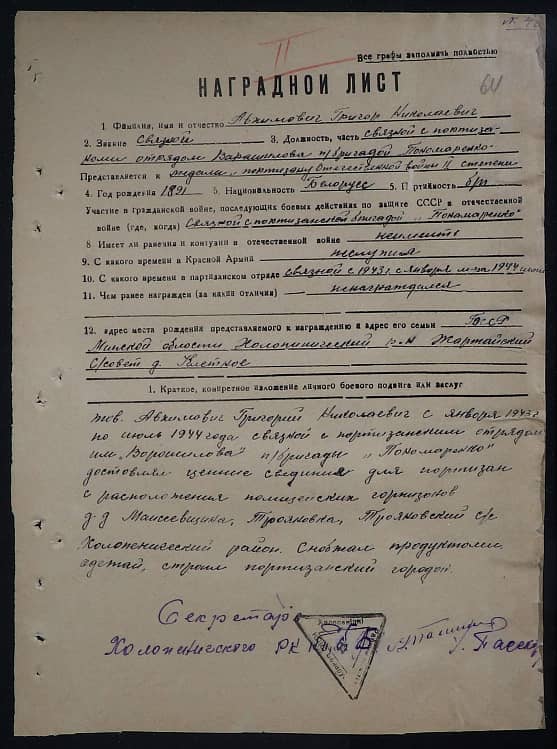 II
Все графы заполнять полностью
64
НАГРАДНОЙ ЛИСТ
1. Фамилия, имя и отчество Авхимович Григор Николаевич
2. Звание Связной 3. Должность, часть связной с партиза-
нами отрядом Варашилова п/бригадой Пономаренко
Представляется к медали „партизану Отечественной войны II степени
4. Год рождения 1891 5. Национальность Белорусс 5. Партийность б/п
Участие в гражданской войне, последующих боевых действиях по защите СССР и отечественной
войне (где, когда) Связной с партизанской бригадой „Пономаренко"
8. Имеет ли ранения и контузии в отечественной войне неимеит
9. С какого времени в Красной Армии неслужил
10. С какого времени в партизанском отряде связной с 1943 г. с января м-ца 1944
11. Чем ранее награжден (за какии отличия) ненаграждался
12. адрес места рождения представляемого к награждению и адрес его семьи БССР
Минской области Холопинический р-н Жартайский
С/совет д. Клетное
1. Краткое, конкретное изложение личного боевого подвига или заслуг
тов. Авхимович Григорий Николаевич с января 1943 г
по июль 1944 года связной с портизанским отрядом
им „Ворошилова" п/бригады „Пономаренко"
доставлял ценние свединия для портизан
с расположения полицейских горнизонов
д.д Маисеевщина, Трояновка, Трояновский с/с
Холопенический район. Снобжал продуктоми,
одетай, строил портизанский городой.
Секретарь
Холопенического РК КП(б)Б